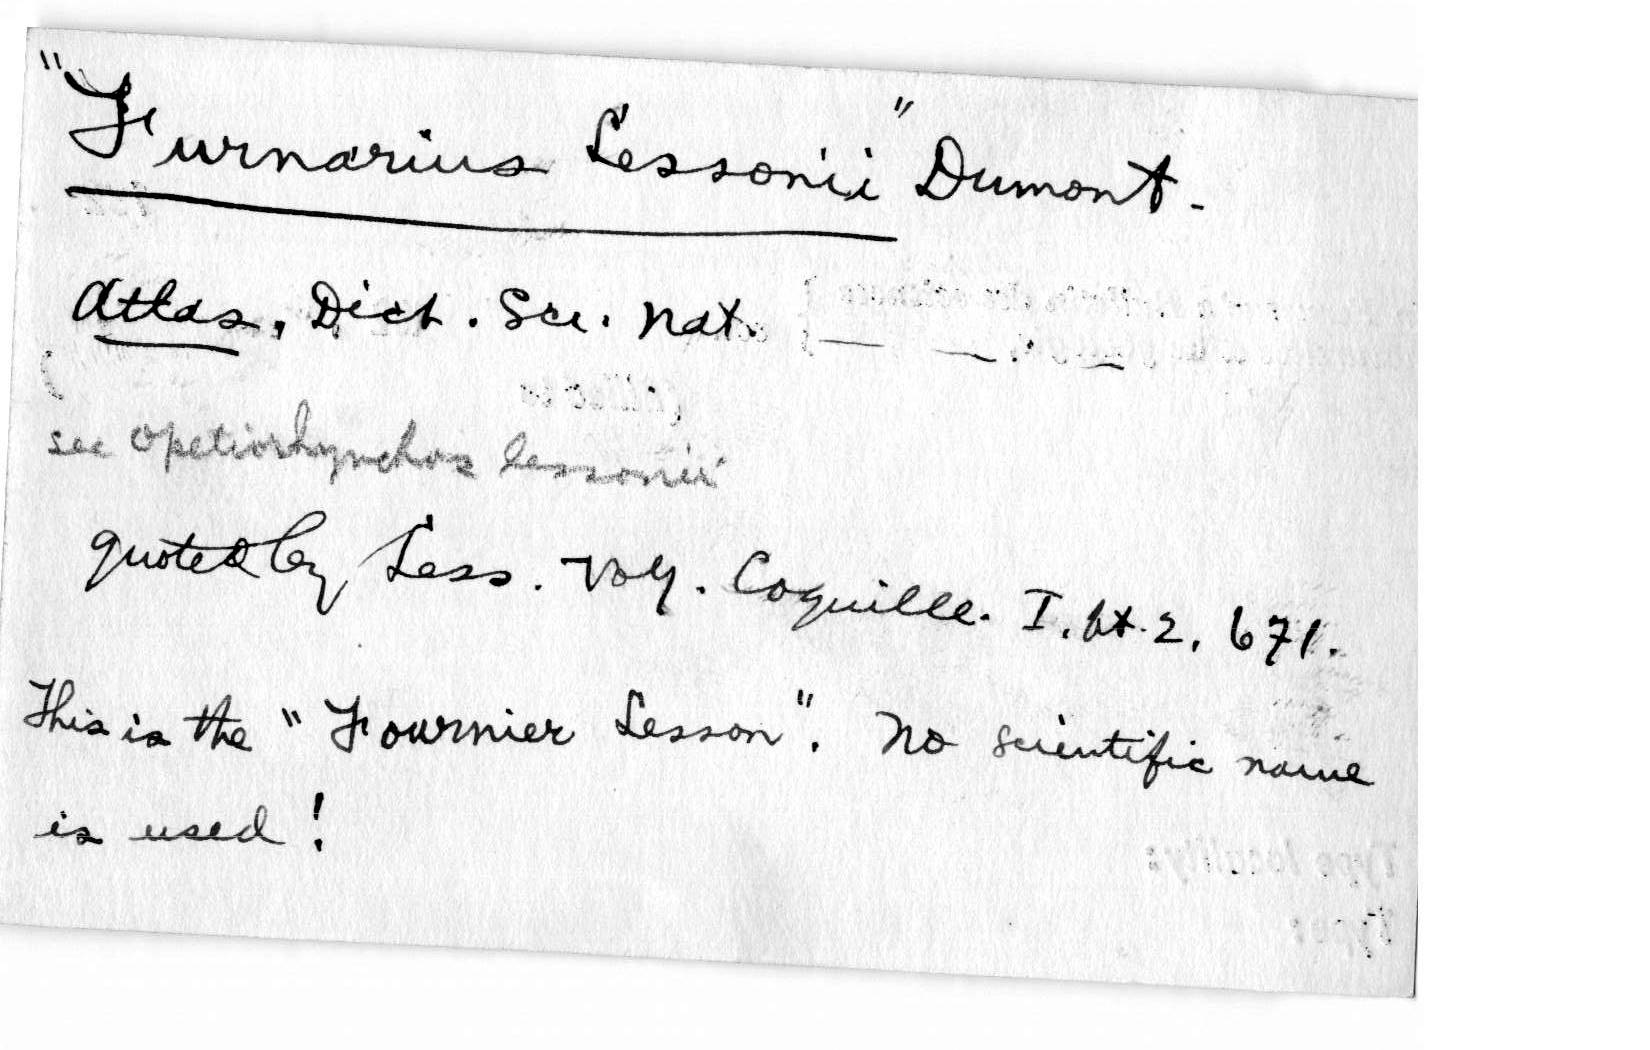 "Furnarius Lessonii" Dumont.
Atlas, Dict. Sci. Nat.
see Opetiorhynchos lessonii
quoted by Less. Voy. Coquille. I, pt. 2, 671.
This is the "Fournier Lesson". No scientific name
is used!
Type locality:
Type: